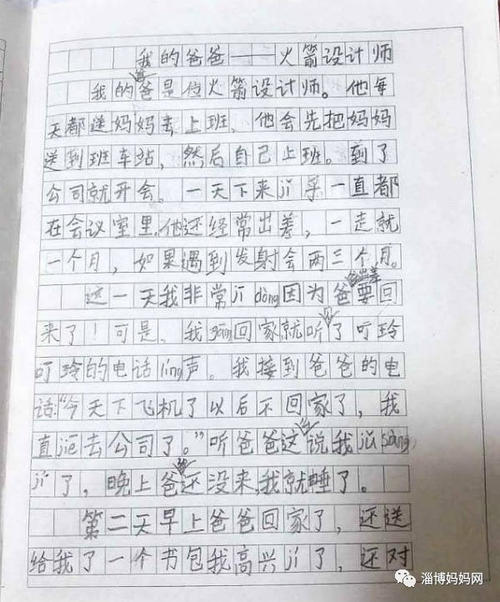 我的爸爸——火箭设计师
我的爸是位火箭设计师。他每
天都送妈妈去上班、他会先把妈妈
送到班车站，然后自己上班。到了
公司就开会。一天下来jī乎一直都
在会议室里，他还经常出差，一走就
一个月，如果遇到发射会两三个月。
这一天我非常jī dòng因为爸要回
来了！可是、我gāng回家就听了叮玲
叮玲的电话líng声。我接到爸爸的电
话“今天下飞机了以后不回家了，我
直jiē去公司了。”听爸爸这说我jǔ sàng
jí了，晚上爸还没来，我就睡了。
第二天早上爸爸回家了，还送
给我了一个书包我高兴jí了，还对
淄博妈妈网